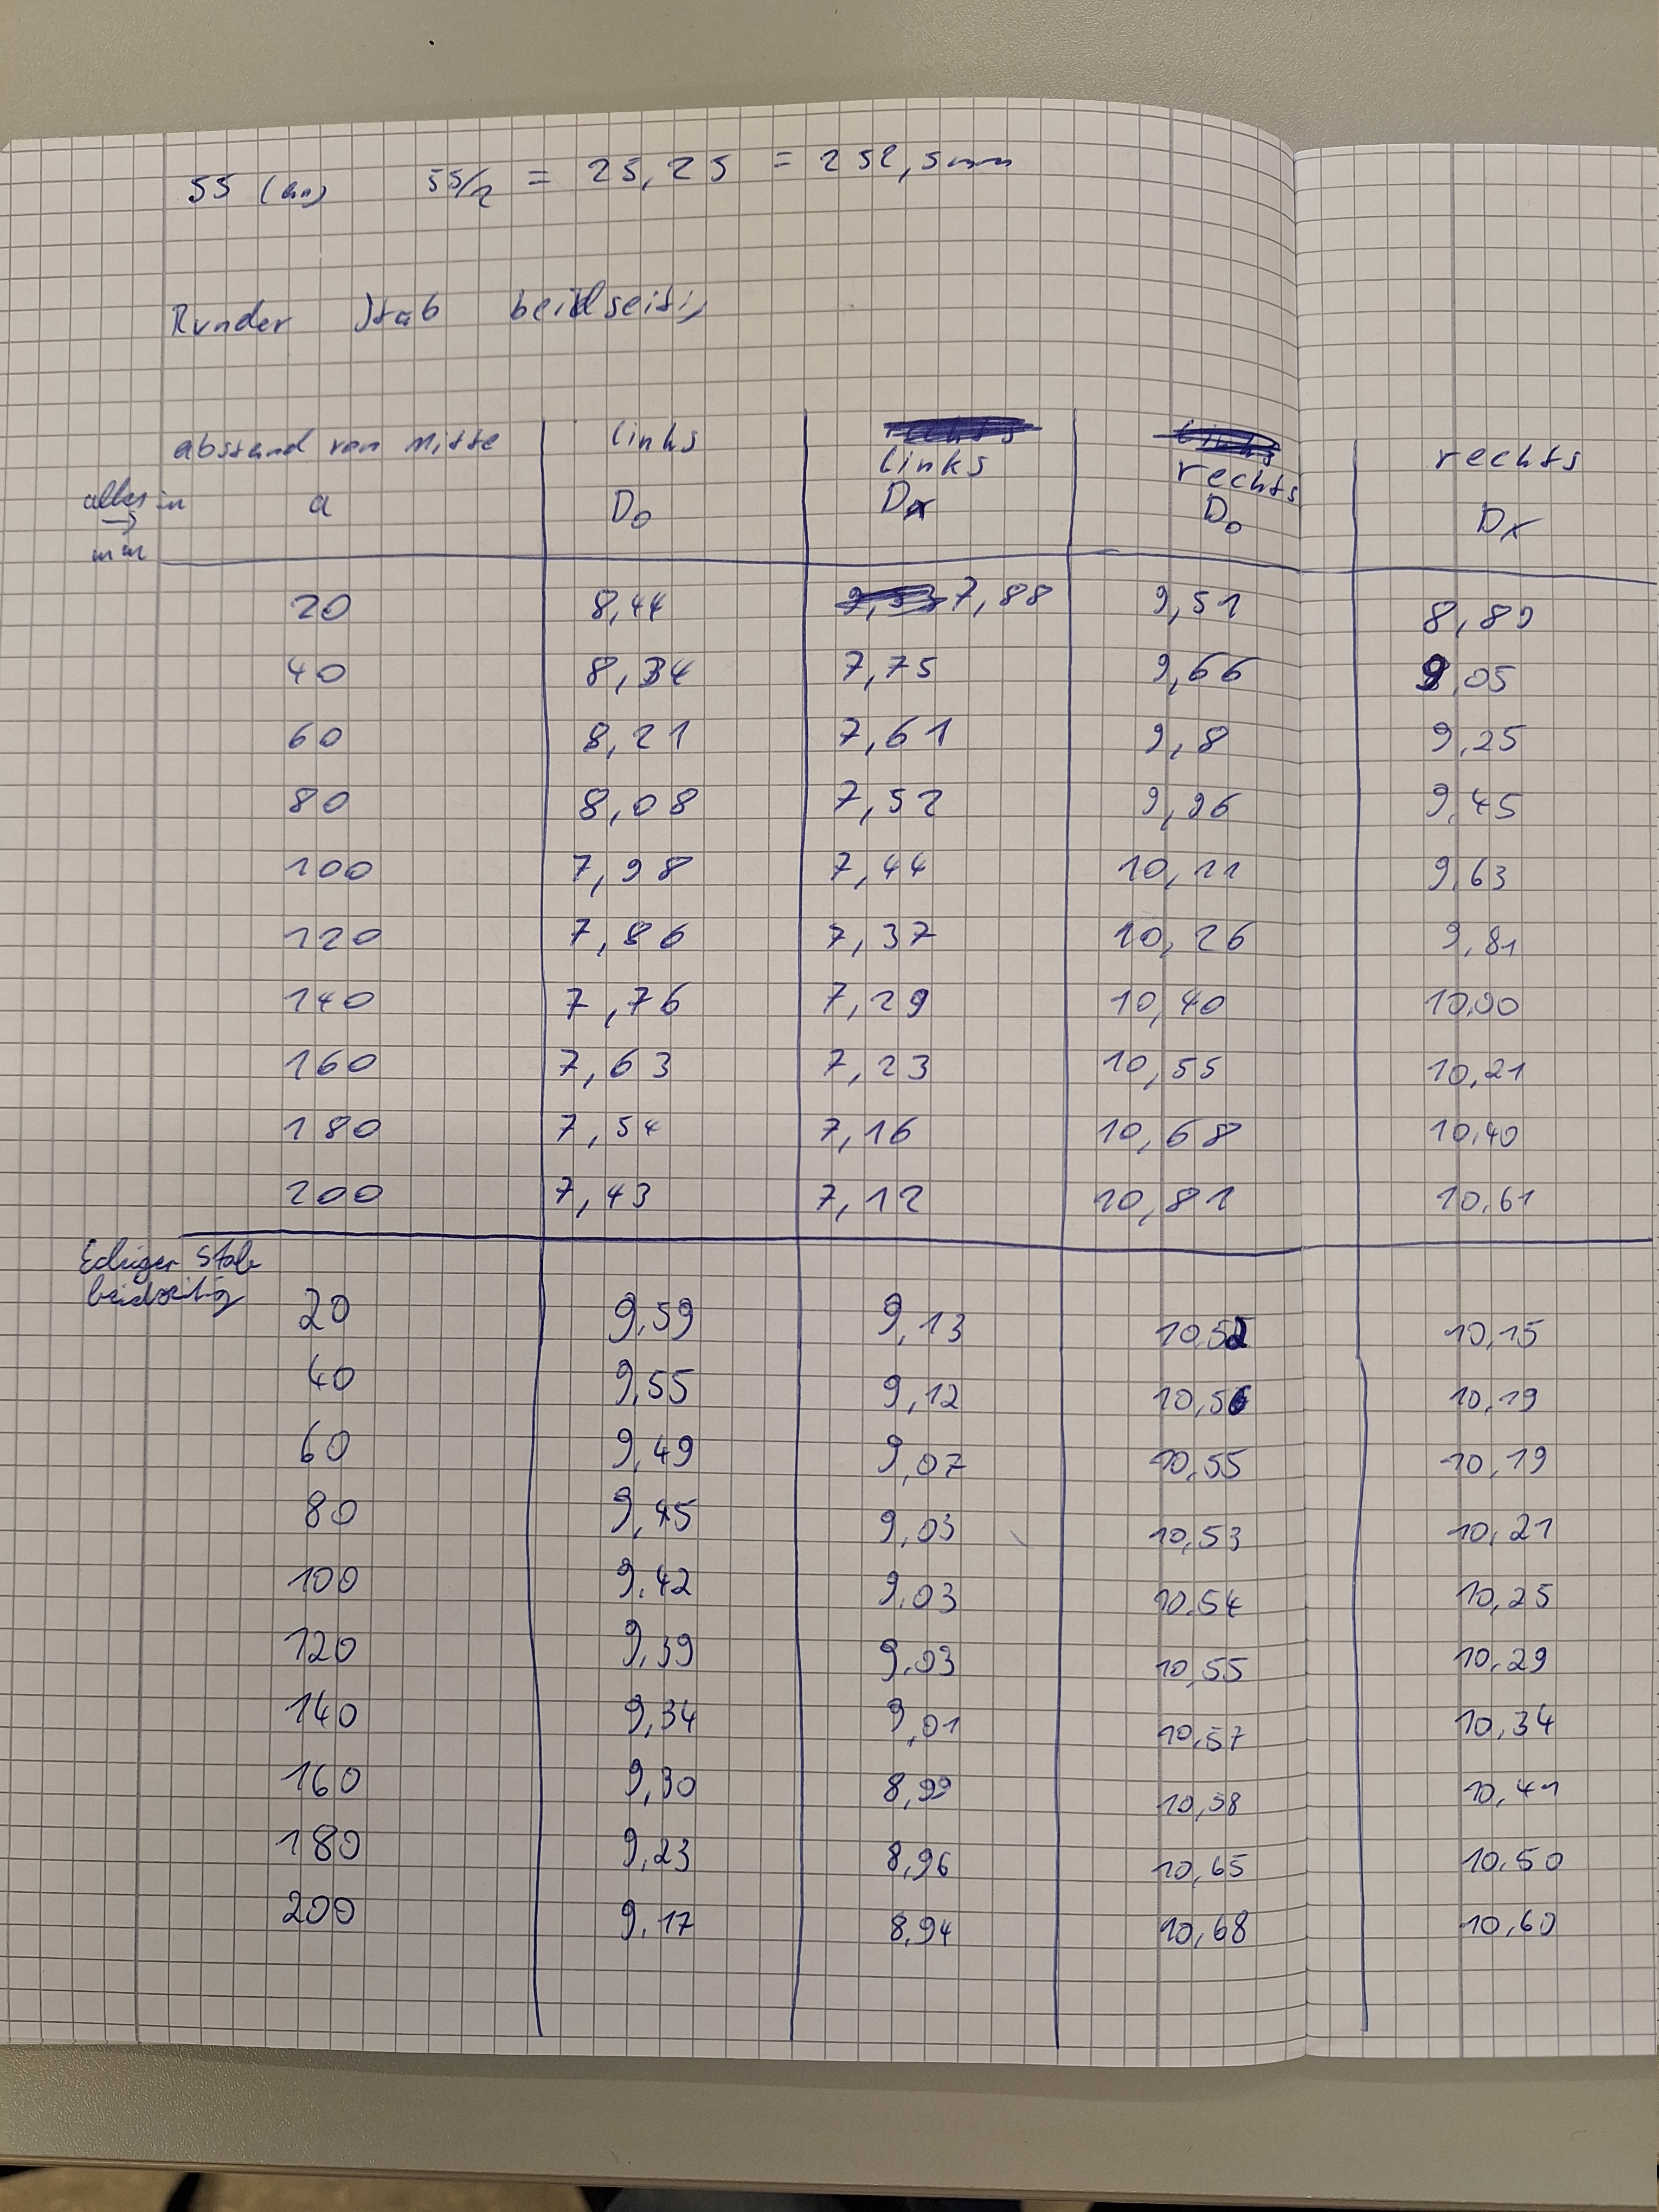 55 (cm) 55/2 = 25,25 = 252,5mm
Runder Stab beidseitig
abstand von Mitte links links rechts rechts
alles in mm a D0 Dx D0 Dx
20 8,44 7,88 9,51 8,89
40 8,34 7,75 9,66 9,05
60 8,21 7,61 9,8 9,25
80 8,08 7,52 9,96 9,45
100 7,98 7,44 10,11 9,63
120 7,86 7,37 10,26 9,81
140 7,76 7,29 10,40 10,00
160 7,63 7,23 10,55 10,21
180 7,54 7,16 10,68 10,40
200 7,43 7,12 10,81 10,61
Eckiger Stab
beidseitig
20 9,59 9,13 10,52 10,15
40 9,55 9,12 10,56 10,19
60 9,49 9,07 10,55 10,19
80 9,45 9,03 10,53 10,21
100 9,42 9,03 10,54 10,25
120 9,39 9,03 10,55 10,29
140 9,34 9,01 10,57 10,34
160 9,30 8,99 10,58 10,41
180 9,23 8,96 10,65 10,50
200 9,17 8,94 10,68 10,60